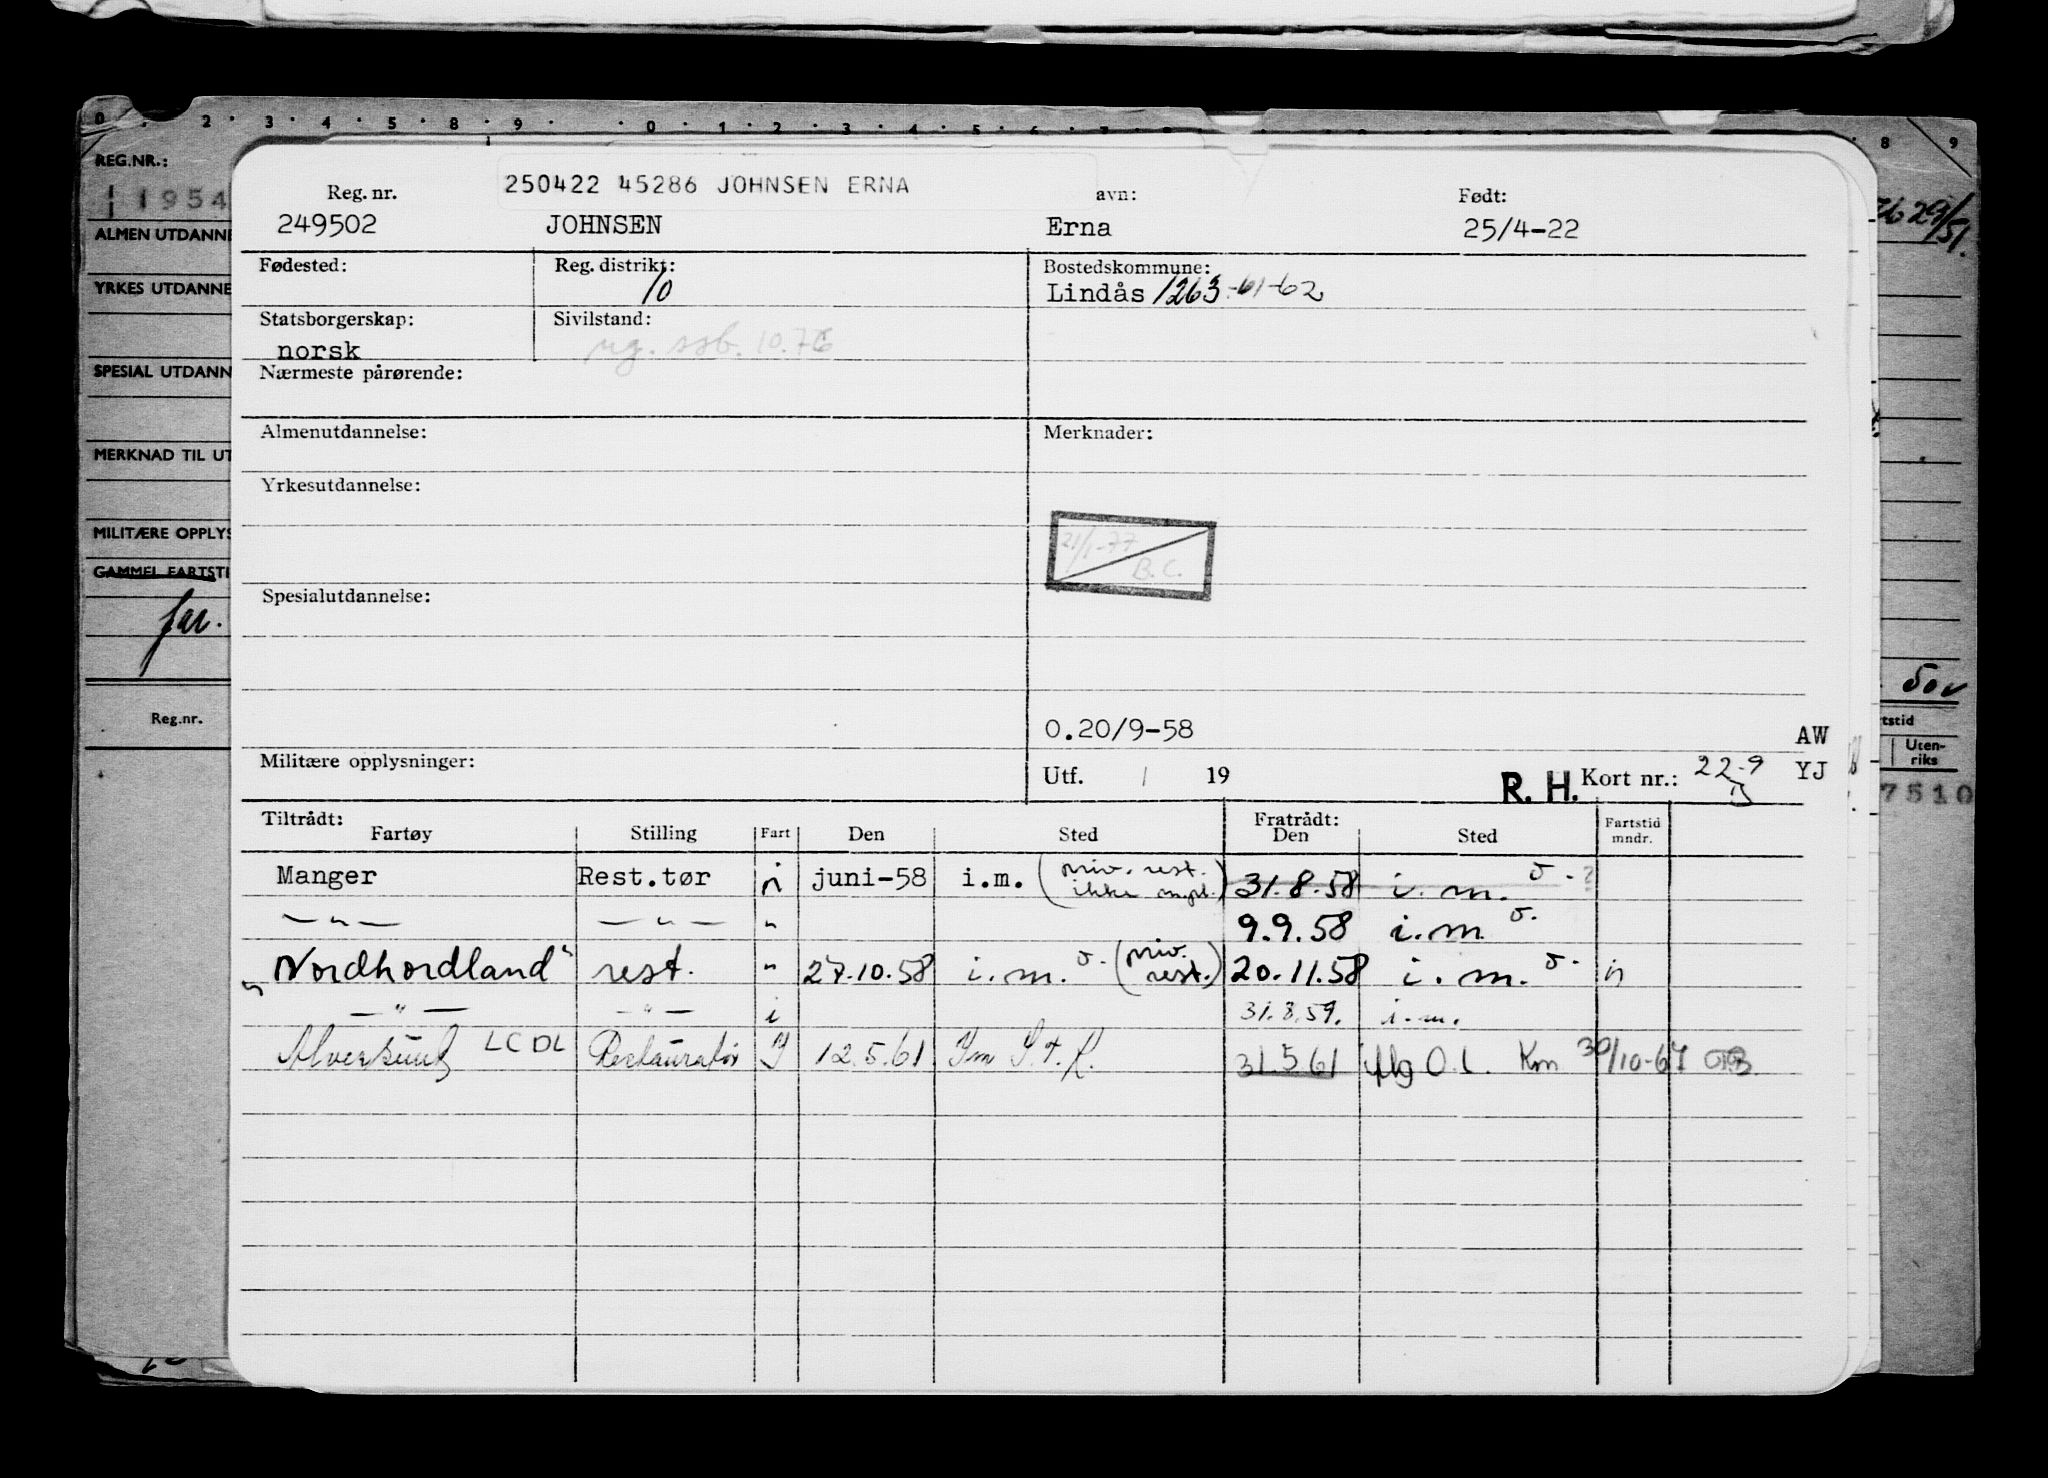 0 . 2 . 3 . 4 . 5 . 8 . 9 . . 0 . 1 . 2 . 3 . 4 . 5 . 6 . 7 . 8 9
REG.NR.:
1954
ALMEN UTDANNE
YRKES UTDANNE
SPESIAL UTDANN
MERKNAD TIL UT
MILITÆRE OPPLYS
GAMMEL FARTSTI
far.
Reg.nr.
29/51.
50
rtstid
Uten-
riks
7510
250422 45286 JOHNSEN ERNA
Reg. nr. avn: Født:
249502 JOHNSEN Erna 25/4-22
Fødested: Reg. distrikt: Bostedskommune:
10 Lindås 1263-61-62
Statsborgerskap: Sivilstand:
norsk ug. ssb. 10.76
Nærmeste pårørende:
Almenutdannelse: Merknader:
Yrkesutdannelse:
21/1-77
B.C.
Spesialutdannelse:
0.20/9-58 AW
Militære opplysninger: Utf. / 19 R. H. Kort nr.: 22-9 YJ
Tiltrådt: Fratrådt: Fartstid
Fartøy Stilling Fart Den Sted Den Sted mndr.
Manger Rest.tør i juni-58 i.m. (priv. rest. ikke mynd.) 31.8.58 i.m. o. ?
— " — — " — " 9.9.58 i.m o.
"Nordhordland" rest. " 27.10.58 i.m. o. (priv. rest.) 20.11.58 i.m. o. in
— " — — " — i 31.8.59. i.m.
Alversund LCDL Restauratør I 12.5.61 Im S.t.R. 31.5.61 flg O.L. Km 30/10-67